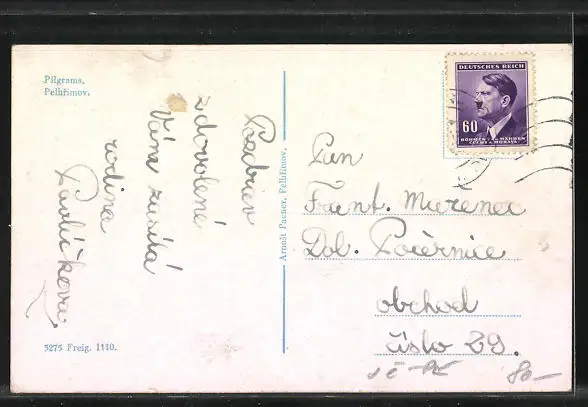 Pilgrams.
Pelhřimov.
Pozdrav
z dovolené
Vám zasílá
rodina
Pavlíčkova
5275 Freig. 1110.
Arnošt Pacner, Pelhřimov.
DEUTSCHES REICH
60
BÖHMEN u. MÄHREN
ČECHY a MORAVA
Pan
Frant. Murenec
Dol. Počernice
obchod
číslo 29.
80-